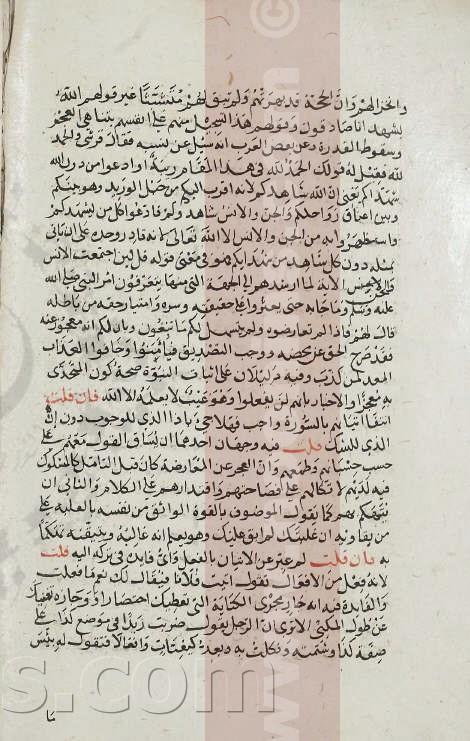 والخذالهم وانّ الحجة قد بهرتهم ولم تبق لهم متشبثا غير قولهم الله
يشهد انا صادقون وقولهم هذا تسجيل منهم على انفسهم بتناهى العجز
وسقوط القدرة وعن بعض العرب انه سئل عن نسبه فقال قرشى والحمد
لله فقيل له قولك الحمد لله فى هذا المقام ريبة او ادعوا من دون الله
شهداءكم يعنى ان الله شاهدكم لانه اقرب اليكم من حبل الوريد وهو بينكم
وبين اعناق رواحلكم والجن والانس شاهدوكم فادعوا كل من يشهدكم
واستظهروا به من الجن والانس الا الله تعالى لانه قادر وحده على ان يأتى
بمثله دون كل شاهد من شهدائكم فهو فى معنى قوله قل لئن اجتمعت الانس
والجن الآية لما ارشدهم الى الجهة التى منها يتعرفون امر النبى صلى الله
عليه وسلم وما جاء به حتى يعثروا على حقيقته وسره وامتياز حقه من باطله
قال لهم فاذا لم تعارضوه ولم يتسهل لكم ما تبغون وبان لكم انه معجوز عنه
فقد صرح الحق عن محضه ووجب التصديق فآمنوا وخافوا العذاب
المعد لمن كذب وفيه دليلان على اثبات النبوة صحة كون المتحدى
به معجزا والاخبار بانهم لن يفعلوا وهو غيب لا يعلمه الا الله فان قلت
انتفاء اتيانهم بالسورة واجب فهلا جىء باذا الذى للوجوب دون ان
الذى للشك قلت فيه وجهان احدهما ان يساق القول معهم على
حسب حسبانهم وطمعهم وانّ العجز عن المعارضة كان قبل التأمل كالمشكوك
فيه لديهم لاتكالهم على فصاحتهم واقتدارهم على الكلام والثانى ان
يتهكم بهم كما يقول الموصوف بالقوة الواثق من نفسه بالغلبة على
من يقاويه ان غلبتك لم ابق عليك وهو يعلم انه غالبه ويتيقنه تهكما
به فان قلت لم عبر عن الاتيان بالفعل واىّ فائدة فى تركه اليه قلت
لانه فعل من الافعال تقول اتيت فلانا فيقال لك نعم ما فعلت
والفائدة فيه انه جار مجرى الكناية التى تعطيك اختصارا ووجازة تغنيك
عن طول المكنى الا ترى ان الرجل يقول ضربت زيدا فى موضع كذا على
صفة كذا وشتمته ونكلت به ويعد كيفيات وافعالا فتقول له بئس
ما